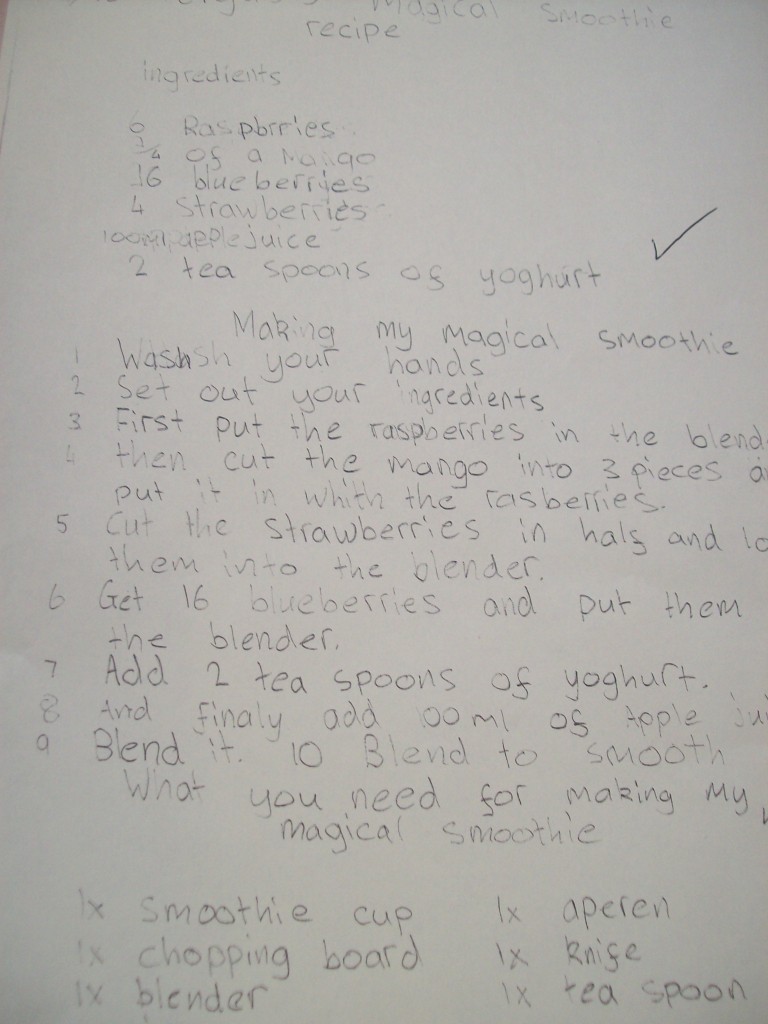 magical smoothie
recipe
ingredients
6 Raspbrries
1/4 of a Mango
16 blueberries
4 Strawberries
100ml apple juice
2 tea spoons of yoghurt
Making my magical smoothie
1 Washsh your hands
2 Set out your ingredients
3 First put the raspberries in the blend
4 then cut the mango into 3 pieces a
put it in whith the rasberries.
5 Cut the strawberries in half and lo
them into the blender.
6 Get 16 blueberries and put them
the blender.
7 Add 2 tea spoons of yoghurt.
8 And finaly add 100ml of Apple jui
9 Blend it. 10 Blend to smooth
What you need for making my
magical smoothie
1x smoothie cup 1x aperen
1x chopping board 1x knife
1x blender 1x tea spoon